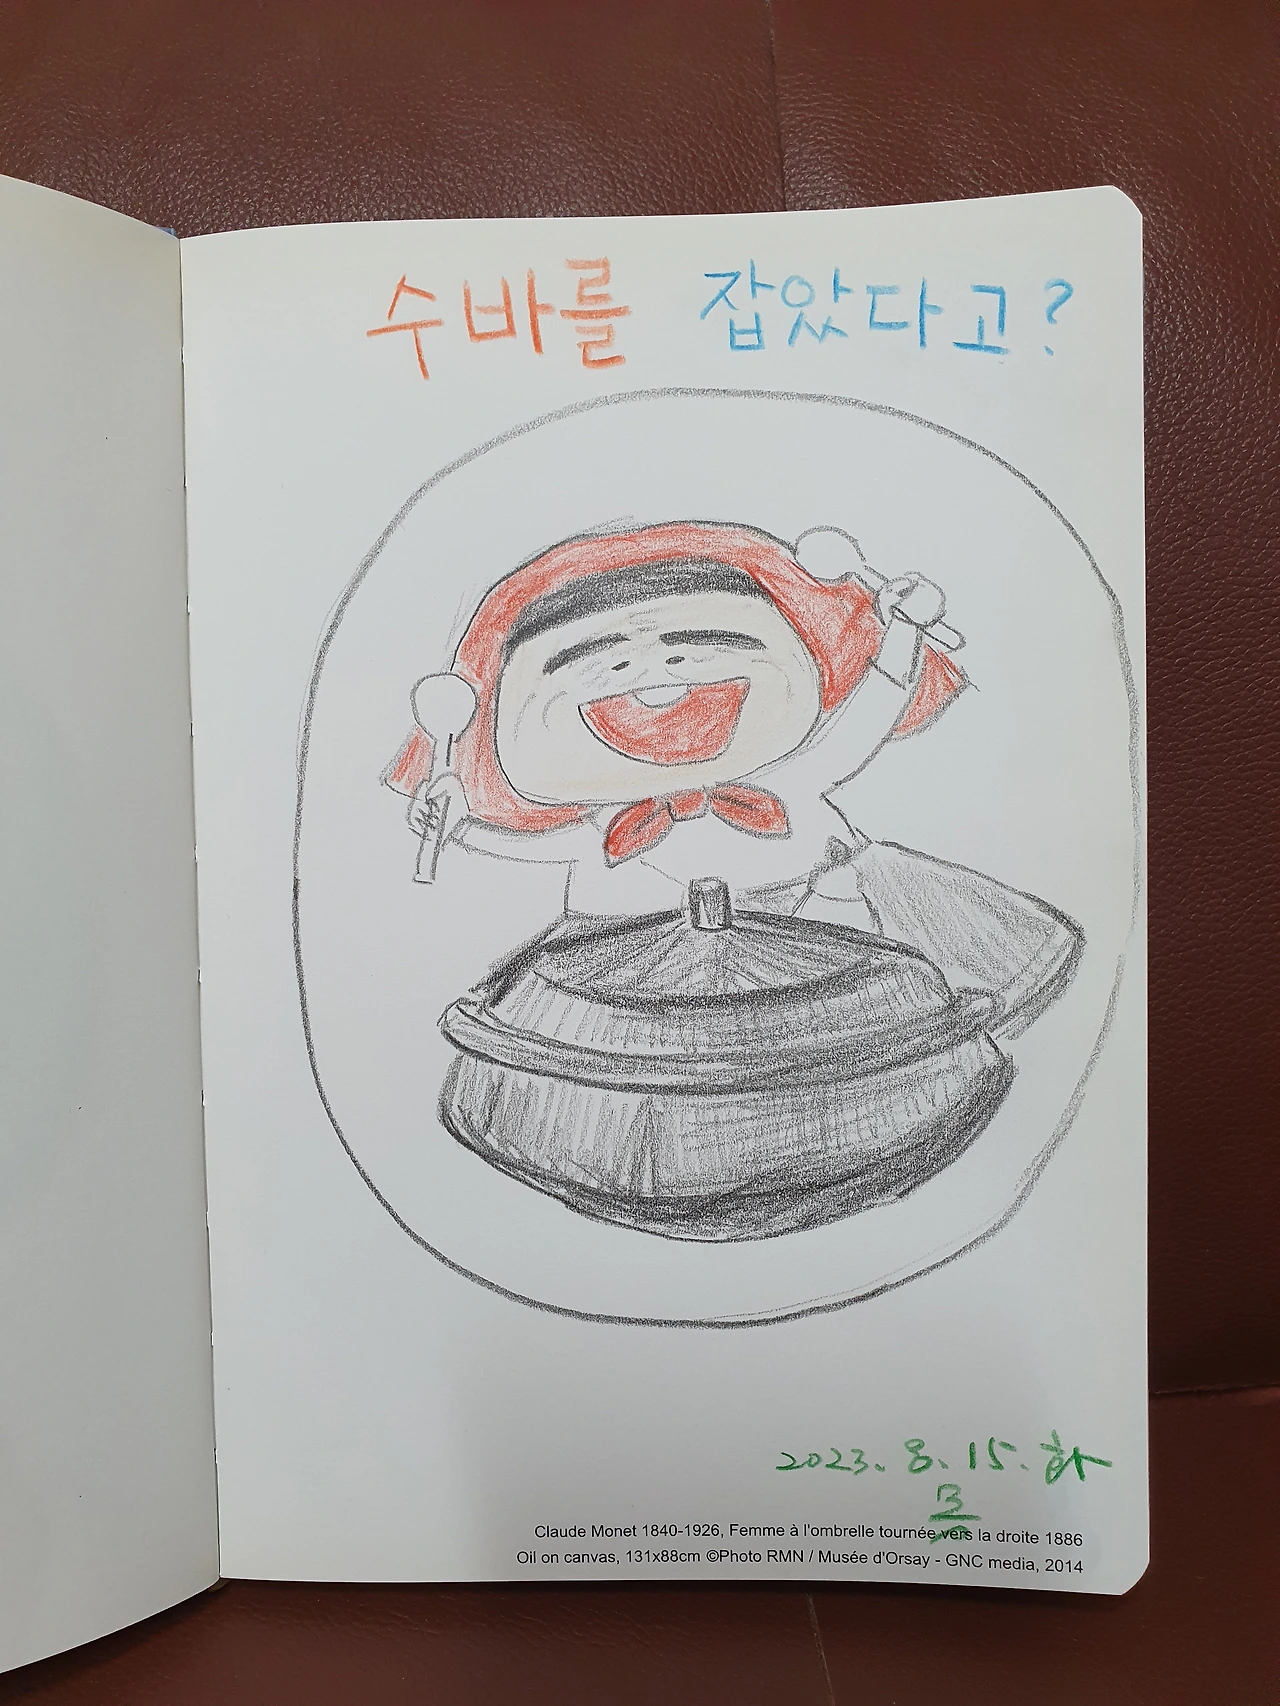 수바를 잡았다고?
2023. 8. 15. 화
Claude Monet 1840-1926, Femme à l'ombrelle tournée vers la droite 1886
Oil on canvas, 131x88cm ©Photo RMN / Musée d'Orsay - GNC media, 2014